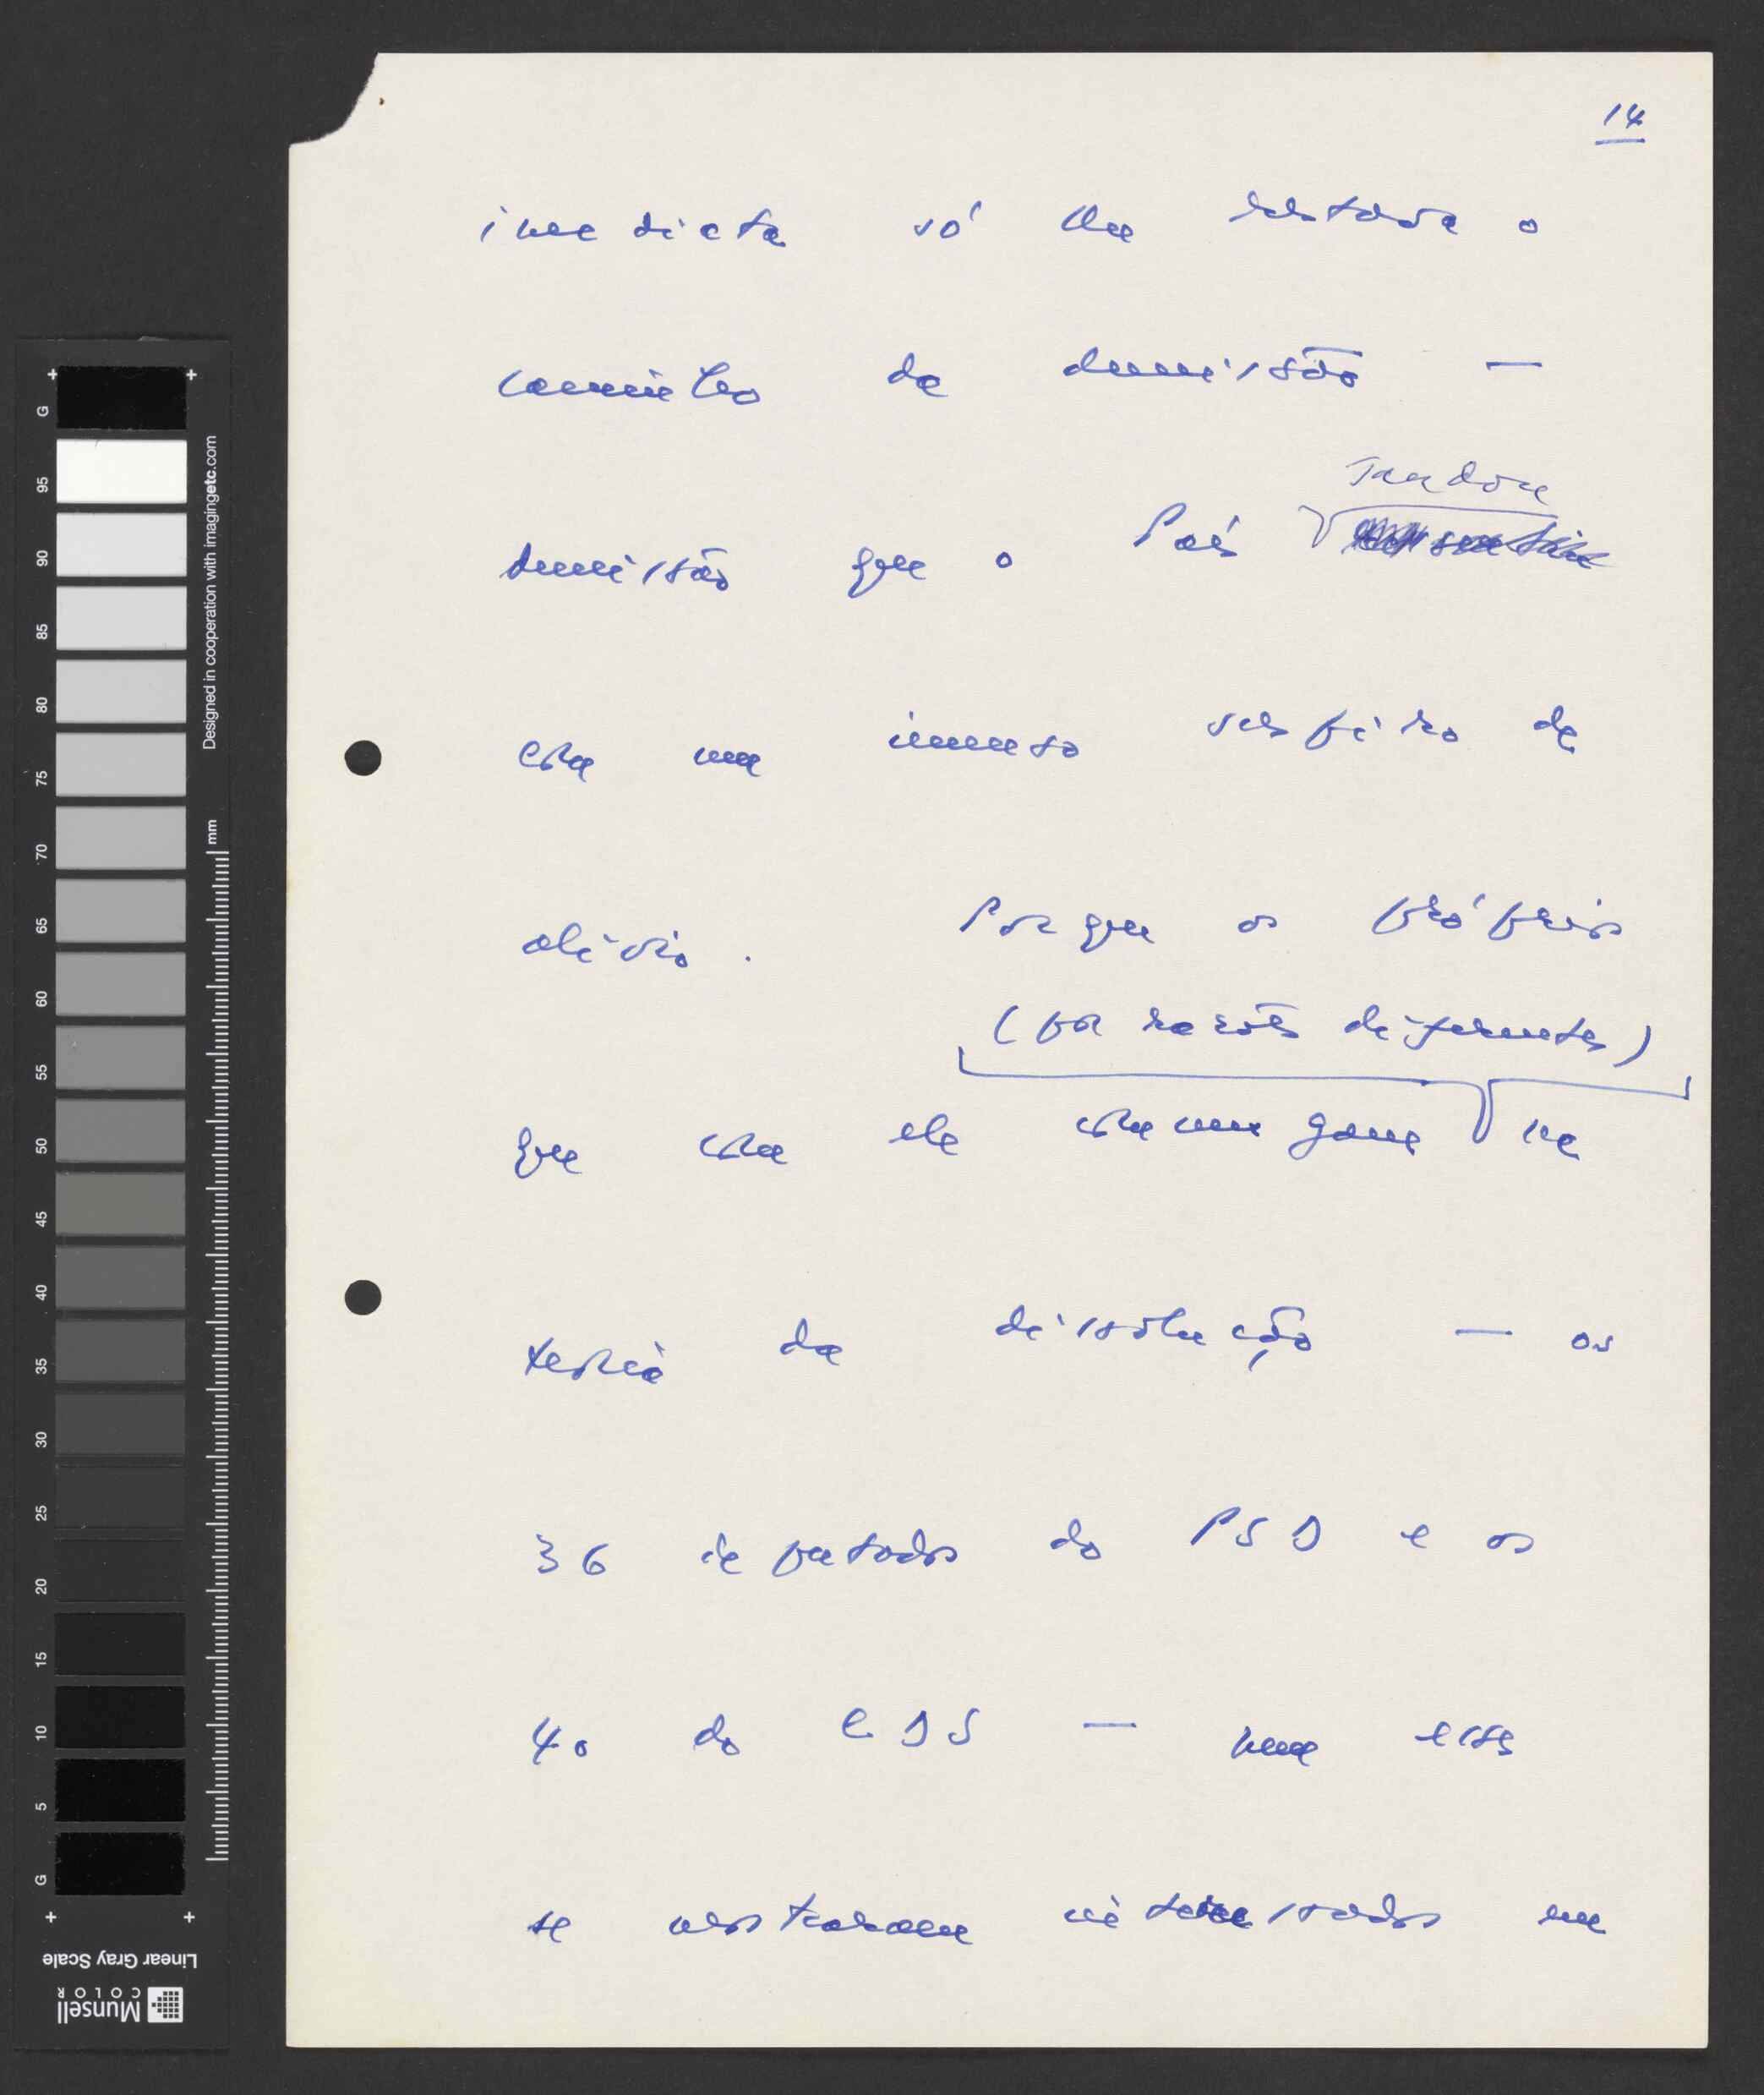 14
imediata só lhe restava o
caminho da demissão —
saudou
demissão que o País
com um imenso suspiro de
alívio. Porque os próprios
(por razões diferentes)
que com ele comungam na
tese da dissolução — os
36 deputados do PSD e os
40 do CDS — nem esses
se mostraram interessados em
G
95
90
85
80
75
70
65
60
55
50
45
40
35
30
25
20
15
10
5
G
Designed in cooperation with imagingetc.com
mm
Linear Gray Scale
Munsell
COLOR